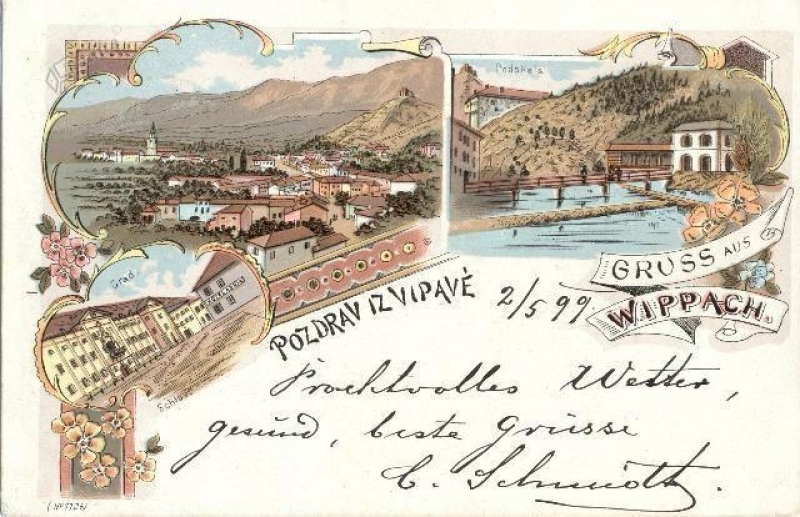 Podskala
Grad.
Schloss
GRUSS AUS
WIPPACH.
POZDRAV IZ VIPAVE
2/5 99
Prachtvolles Wetter,
gesund, beste Grüsse
C. Schmidt.